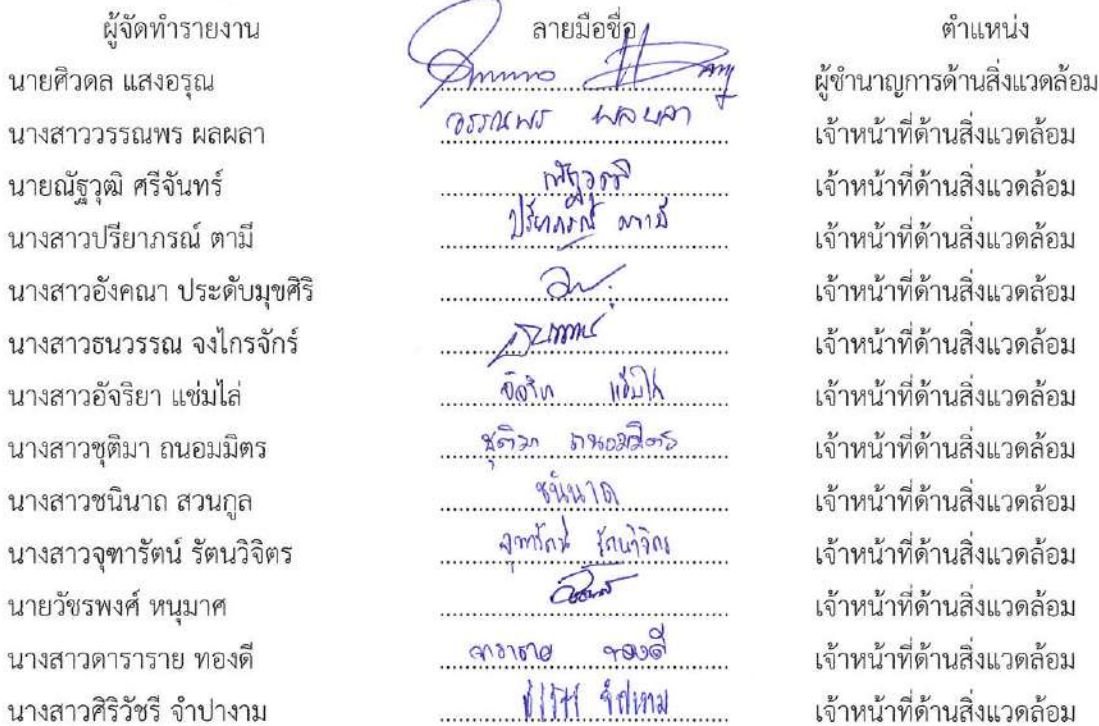 ผู้จัดทำรายงาน ลายมือชื่อ ตำแหน่ง
นายศิวดล แสงอรุณ ผู้ชำนาญการด้านสิ่งแวดล้อม
นางสาววรรณพร ผลผลา วรรณพร ผลผลา เจ้าหน้าที่ด้านสิ่งแวดล้อม
นายณัฐวุฒิ ศรีจันทร์ เจ้าหน้าที่ด้านสิ่งแวดล้อม
นางสาวปรียาภรณ์ ตามี ปรียาภรณ์ ตามี เจ้าหน้าที่ด้านสิ่งแวดล้อม
นางสาวอังคณา ประดับมุขศิริ เจ้าหน้าที่ด้านสิ่งแวดล้อม
นางสาวธนวรรณ จงไกรจักร์ เจ้าหน้าที่ด้านสิ่งแวดล้อม
นางสาวอัจริยา แช่มไล่ เจ้าหน้าที่ด้านสิ่งแวดล้อม
นางสาวชุติมา ถนอมมิตร ชุติมา ถนอมมิตร เจ้าหน้าที่ด้านสิ่งแวดล้อม
นางสาวชนินาถ สวนกูล ชนินาถ เจ้าหน้าที่ด้านสิ่งแวดล้อม
นางสาวจุฑารัตน์ รัตนวิจิตร จุฑารัตน์ รัตนวิจิตร เจ้าหน้าที่ด้านสิ่งแวดล้อม
นายวัชรพงศ์ หนุมาศ เจ้าหน้าที่ด้านสิ่งแวดล้อม
นางสาวดาราราย ทองดี ดาราราย ทองดี เจ้าหน้าที่ด้านสิ่งแวดล้อม
นางสาวศิริวัชรี จำปางาม เจ้าหน้าที่ด้านสิ่งแวดล้อม